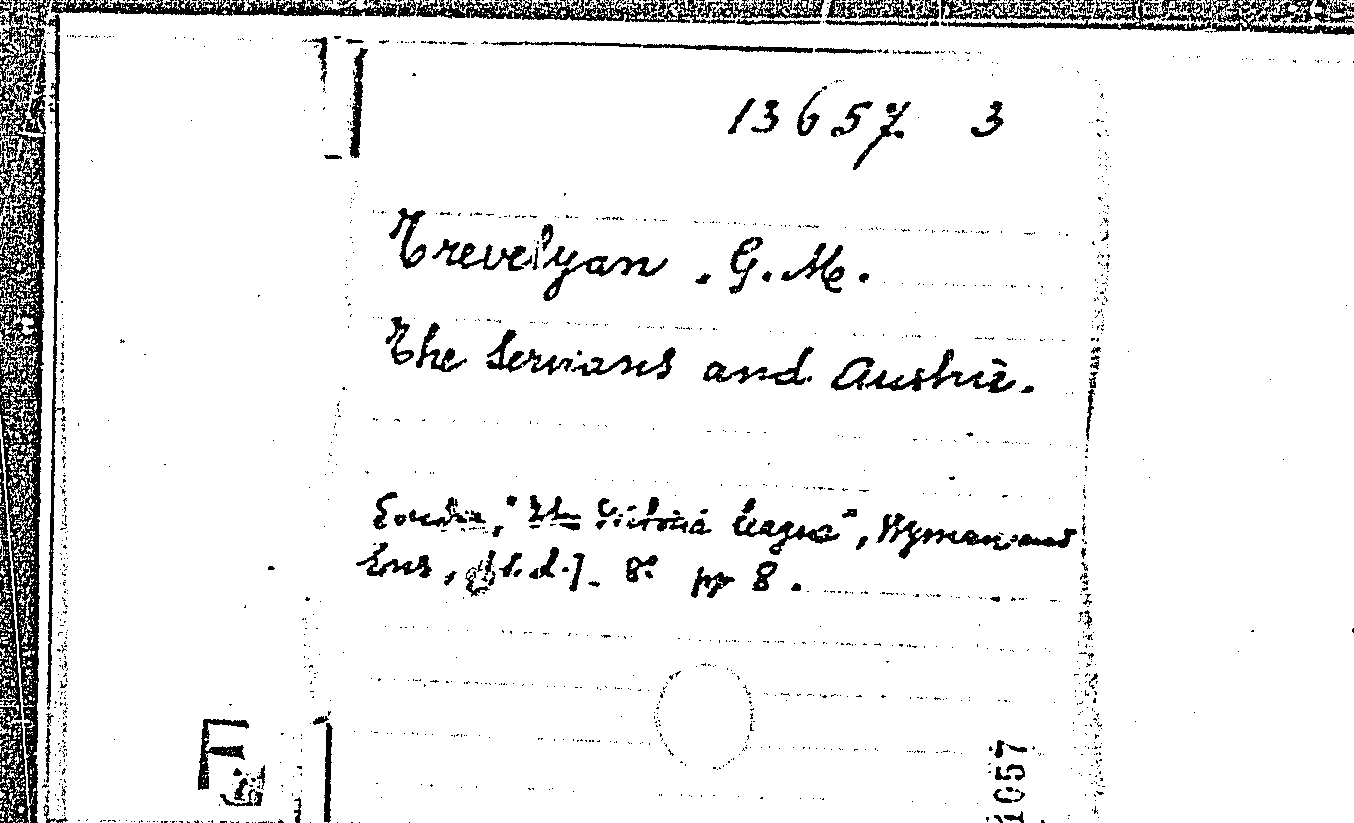 13657 3
Trevelyan . G. M.
The Servians and Austria.
London, "The Victoria League", Wyman and
Sons, [s.d.]. 8º pp 8.
F
1057